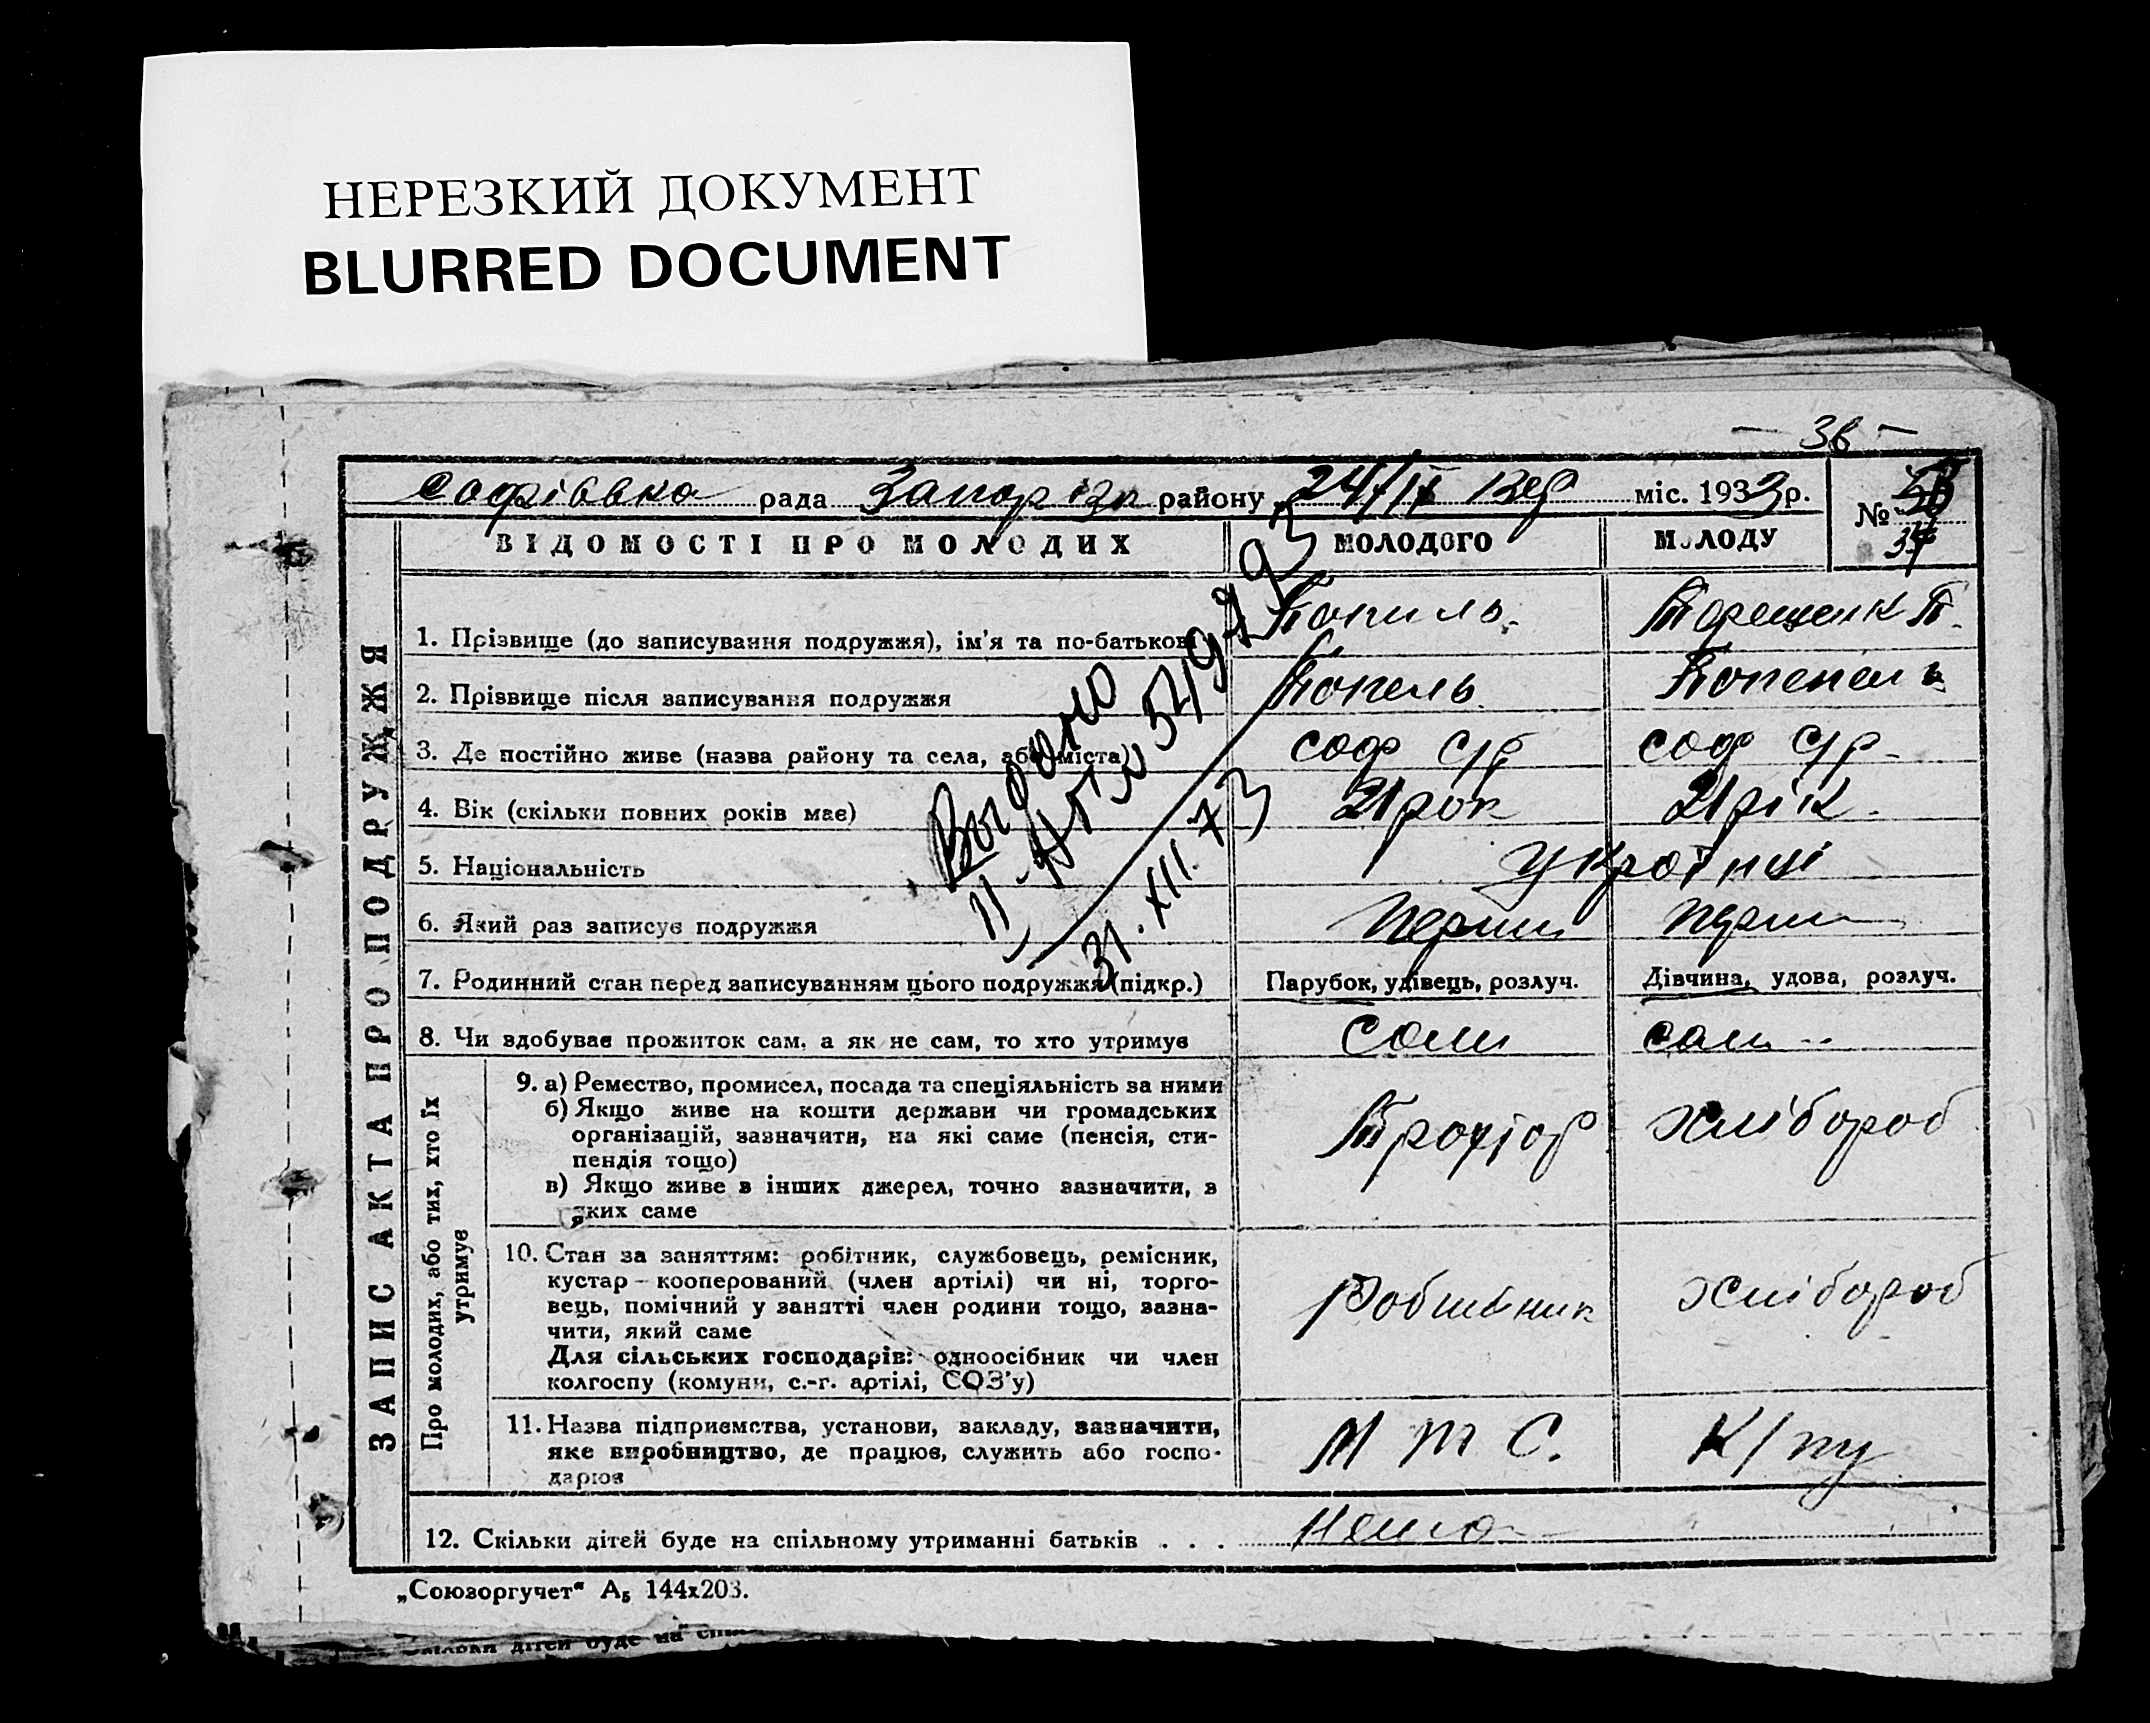 НЕРЕЗКИЙ ДОКУМЕНТ
BLURRED DOCUMENT
— 36 —
Софіївка рада Запоріз району 24/IX міс. 1933 р. №
34
ВІДОМОСТІ ПРО МОЛОДИХ МОЛОДОГО МОЛОДУ
ЗАПИС АКТА ПРО ПОДРУЖЖЯ
1. Прізвище (до записування подружжя), ім'я та по-батькові
2. Прізвище після записування подружжя
3. Де постійно живе (назва району та села, або міста) соф с/р соф с/р
4. Вік (скільки повних років має) 21 рок 21 рік
5. Національність Україниці
6. Який раз записує подружжя перш перш
7. Родинний стан перед записуванням цього подружжя (підкр.) Парубок, удівець, розлуч. Дівчина, удова, розлуч.
8. Чи здобуває прожиток сам, а як не сам, то хто утримує сам сам
Про молодих, або тих, хто їх утримує
9. а) Ремество, промисел, посада та спеціяльність за ними
б) Якщо живе на кошти держави чи громадських
організацій, зазначити, на які саме (пенсія, сти-
пендія тощо) хлібороб
в) Якщо живе з інших джерел, точно зазначити, з
яких саме
10. Стан за заняттям: робітник, службовець, ремісник,
кустар-кооперований (член артілі) чи ні, торго-
вець, помічний у занятті член родини тощо, зазна- Робітник хлібороб
чити, який саме
Для сільських господарів: одноосібник чи член
колгоспу (комуни, с.-г. артілі, СОЗ'у)
11. Назва підприємства, установи, закладу, зазначити,
яке виробництво, де працює, служить або госпо- М Т С.
дарює
12. Скільки дітей буде на спільному утриманні батьків . . . Нема
Выдано
31.XII.73
„Союзоргучет" А₅ 144х203.